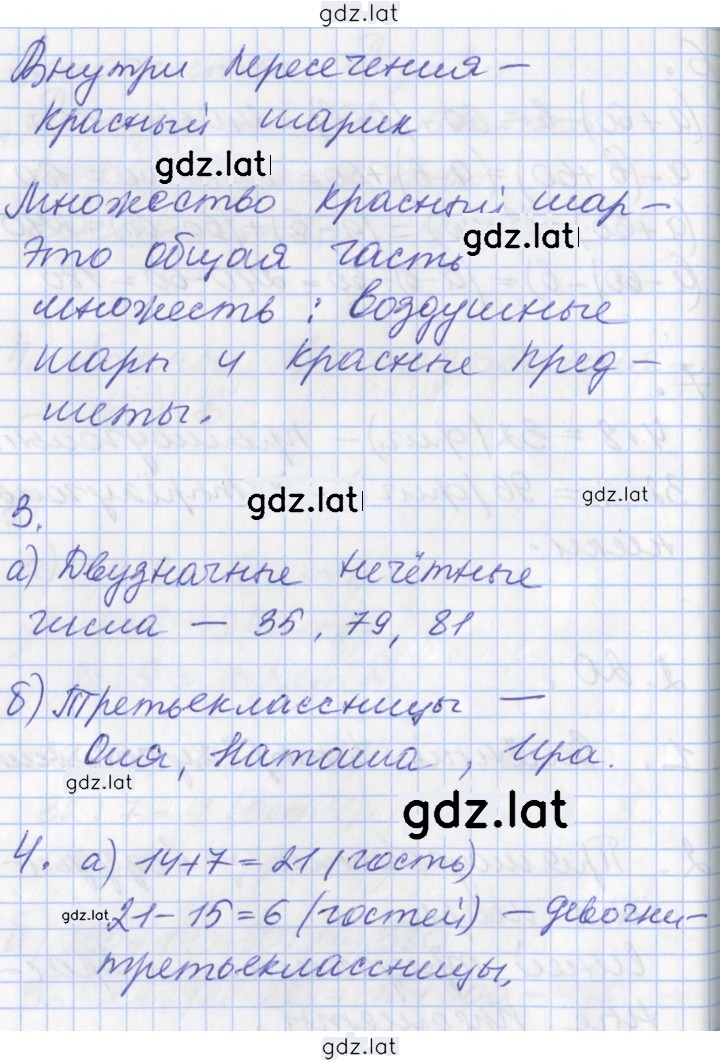 gdz.lat
Внутри пересечения –
красный шарик
gdz.lat
Множество красный шар –
gdz.lat
это общая часть
множеств : воздушные
шары и красные пред-
меты.
gdz.lat
gdz.lat
3.
а) Двузначные нечётные
числа – 35, 79, 81
б) Третьеклассницы –
Оля, Наташа, Ира.
gdz.lat
gdz.lat
4. а) 14+7=21 (гость)
gdz.lat 21-15=6 (гостей) – девочки-
третьеклассницы,
gdz.lat